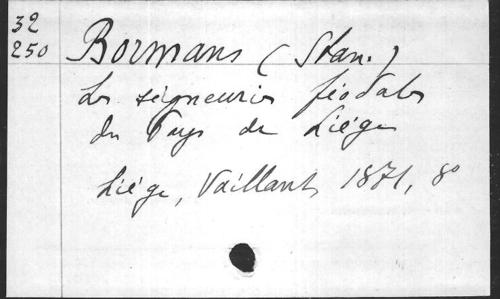 32
250
Bormans (Stan.)
Les seigneuries féodales
du Pays de Liége
Liége, Vaillant, 1871, 8º